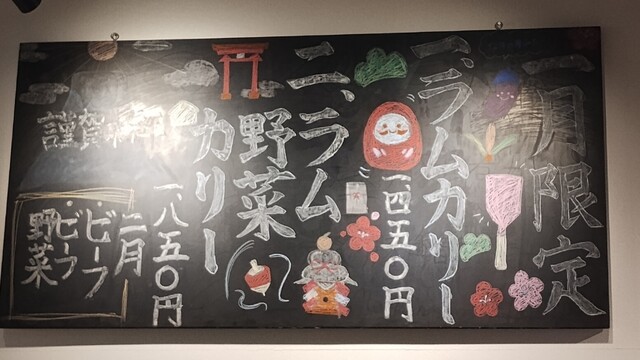 一月限定
一、ラムカリー
一、四五〇円
二、ラム
野菜
カリー
一、八五〇円
謹賀新年
二月
・ビーフ
・ビーフ
野菜